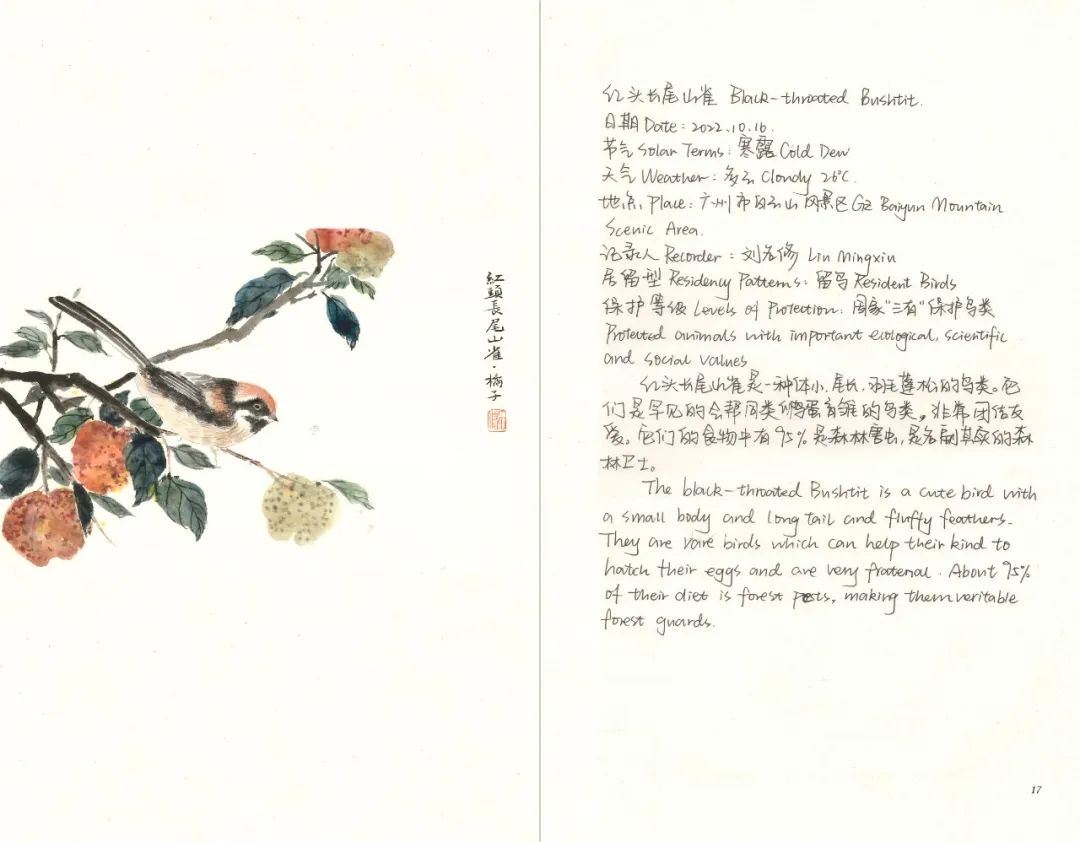 紅頭長尾山雀·橘子
红头长尾山雀 Black-throated Bushtit.
日期 Date: 2022.10.16.
节气 Solar Terms: 寒露 Cold Dew
天气 Weather: 多云 Cloudy 26°C.
地点 Place: 广州市白云山风景区 GZ Baiyun Mountain
Scenic Area.
记录人 Recorder: 刘名修 Liu Mingxiu
居留型 Residency Patterns: 留鸟 Resident Birds
保护等级 Levels of Protection: 国家"三有"保护鸟类
Protected animals with important ecological, scientific
and social values
红头长尾山雀是一种体小、尾长、羽毛蓬松的鸟类。它
们是罕见的会帮同类孵蛋育雏的鸟类，非常团结友
爱。它们的食物中有95%是森林害虫，是名副其实的森
林卫士。
The black-throated Bushtit is a cute bird with
a small body and long tail and fluffy feathers.
They are rare birds which can help their kind to
hatch their eggs and are very fraternal. About 95%
of their diet is forest pests, making them veritable
forest guards.
17